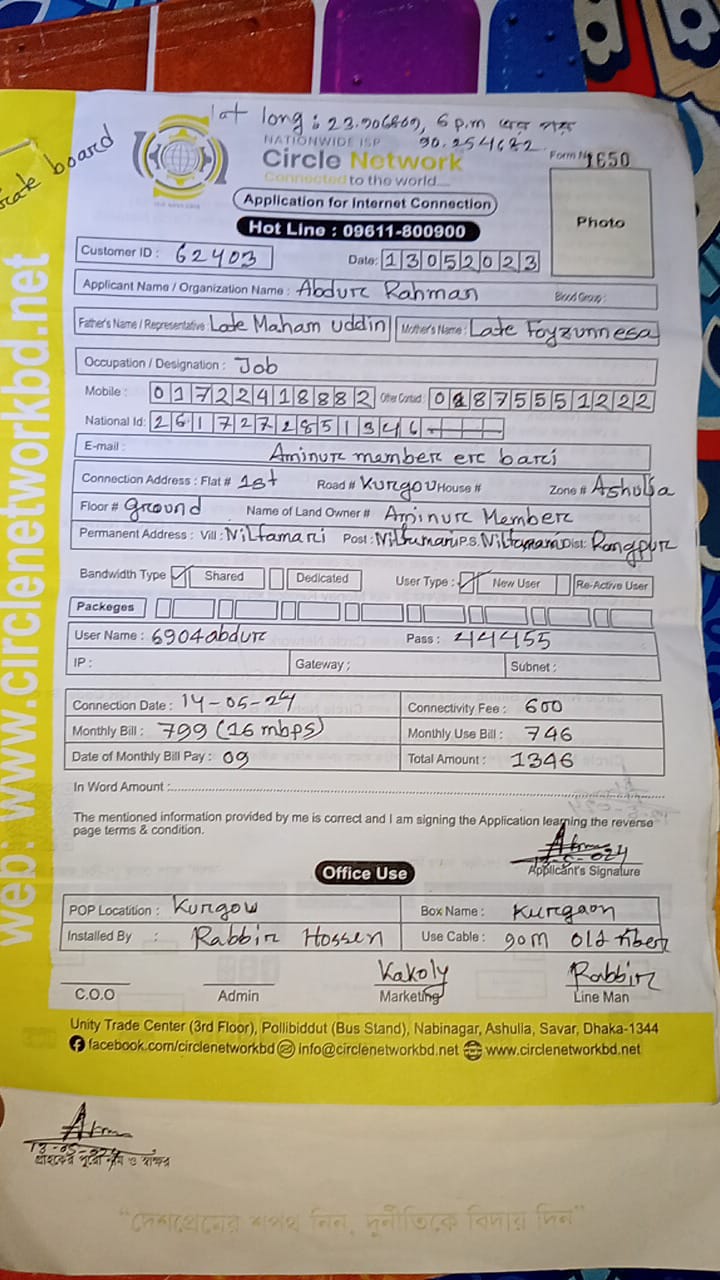 lat long : 23.906869, 6 p.m এর পরে
90.254682
cate board
NATIONWIDE ISP
Circle Network
Connected to the world....
Form No 1650
Application for Internet Connection
Hot Line : 09611-800900
Photo
Customer ID : 62403 Date: 13052023
Applicant Name / Organization Name : Abdur Rahman Blood Group :
Father's Name / Representative : Late Maham Uddin Mother's Name : Late Foyzunnesa
Occupation / Designation : Job
Mobile : 01722418882 Other Contact : 01875551222
National Id: 2617272851346
E-mail :
Aminur member er bari
Connection Address : Flat # 1st Road # Kurgou House # Zone # Ashulia
Floor # ground Name of Land Owner # Aminur Member
Permanent Address : Vill : Nilfamari Post : Nilfamari P.S. Nilfamari Dist: Rangpur
Bandwidth Type Shared Dedicated User Type : New User Re-Active User
Packeges
User Name : 6904abdur Pass : 44455
IP : Gateway : Subnet :
Connection Date : 14-05-24 Connectivity Fee : 600
Monthly Bill : 799 (16 mbps) Monthly Use Bill : 746
Date of Monthly Bill Pay : 09 Total Amount : 1346
In Word Amount :
The mentioned information provided by me is correct and I am signing the Application learning the reverse
page terms & condition.
Applicant's Signature
Office Use
POP Locatition : Kurgow Box Name : Kurgaon
Installed By : Rabbir Hossen Use Cable : 90m Old fiber
Kakoly Rabbir
C.O.O Admin Marketing Line Man
Unity Trade Center (3rd Floor), Pollibiddut (Bus Stand), Nabinagar, Ashulia, Savar, Dhaka-1344
facebook.com/circlenetworkbd info@circlenetworkbd.net www.circlenetworkbd.net
web: www.circlenetworkbd.net
গ্রাহকের পুরো নাম ও স্বাক্ষর
“দেশপ্রেমের শপথ নিন, দুর্নীতিকে বিদায় দিন”